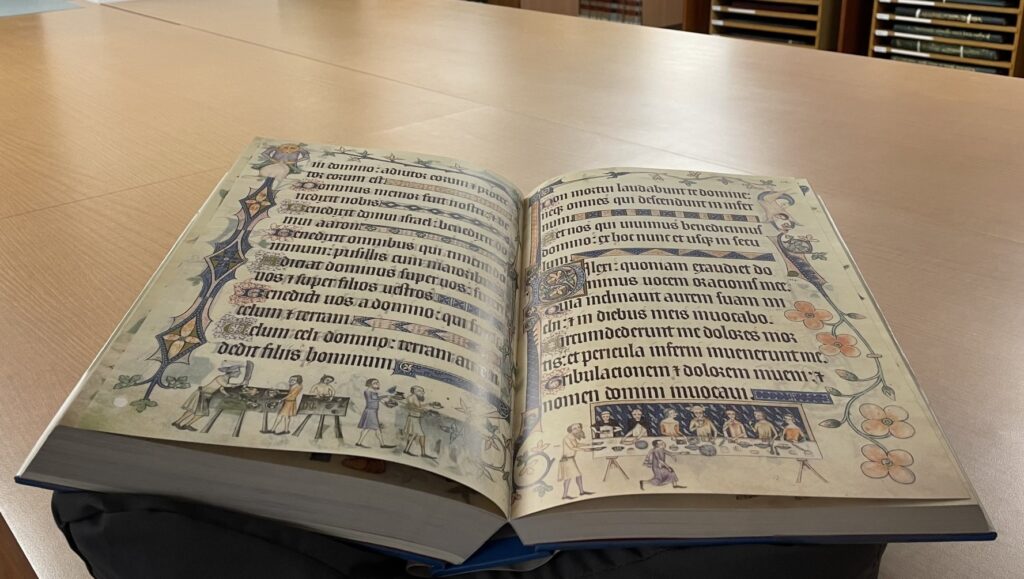 in domino: adiutor eorum ⁊ protec
tor eorum est
Dominus memor fuit nostri: ⁊ be
nedixit nobis.
Benedixit domui israel: benedixit do
mui aaron
Benedixit omnibus qui timent do
minum: pusillis cum maiorib
dominus super uos: super
uos, ⁊ super filios uestros
Benedicti uos a domino: qui
celum ⁊ terram.
Celum celi domino: terram au
dedit filiis hominum
Non mortui laudabunt te domine:
neqȝ omnes qui descendunt in infer
num
Set nos qui uiuimus benedicimus
domino: ex hoc nunc et usqȝ in secu
lum
Dilexi: quoniam exaudiet do
minus uocem orationis mee.
Quia inclinauit aurem suam mi
chi: ⁊ in diebus meis inuocabo.
Circumdederunt me dolores mor
tis: et pericula inferni inuenerunt me.
Tribulacionem ⁊ dolorem inueni: ⁊
nomen domini inuocaui